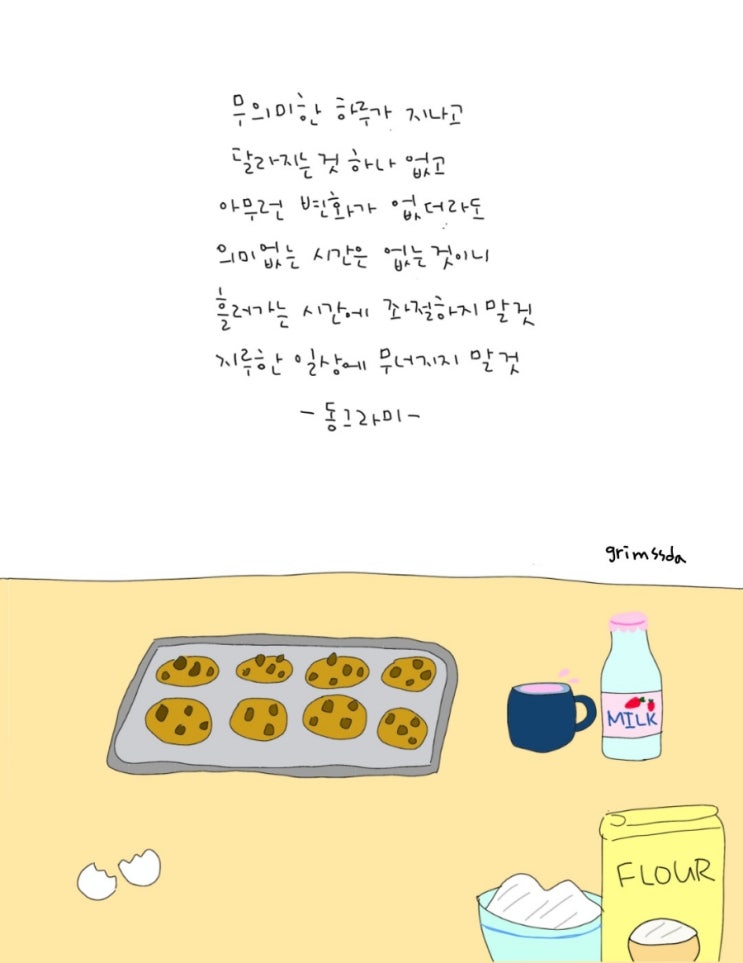 무의미한 하루가 지나고
달라지는것 하나 없고
아무런 변화가 없더라도
의미없는 시간은 없는것이니
흘러가는 시간에 좌절하지 말것
지루한 일상에 무너지지 말것
- 동그라미 -
grimssda
MILK
FLOUR